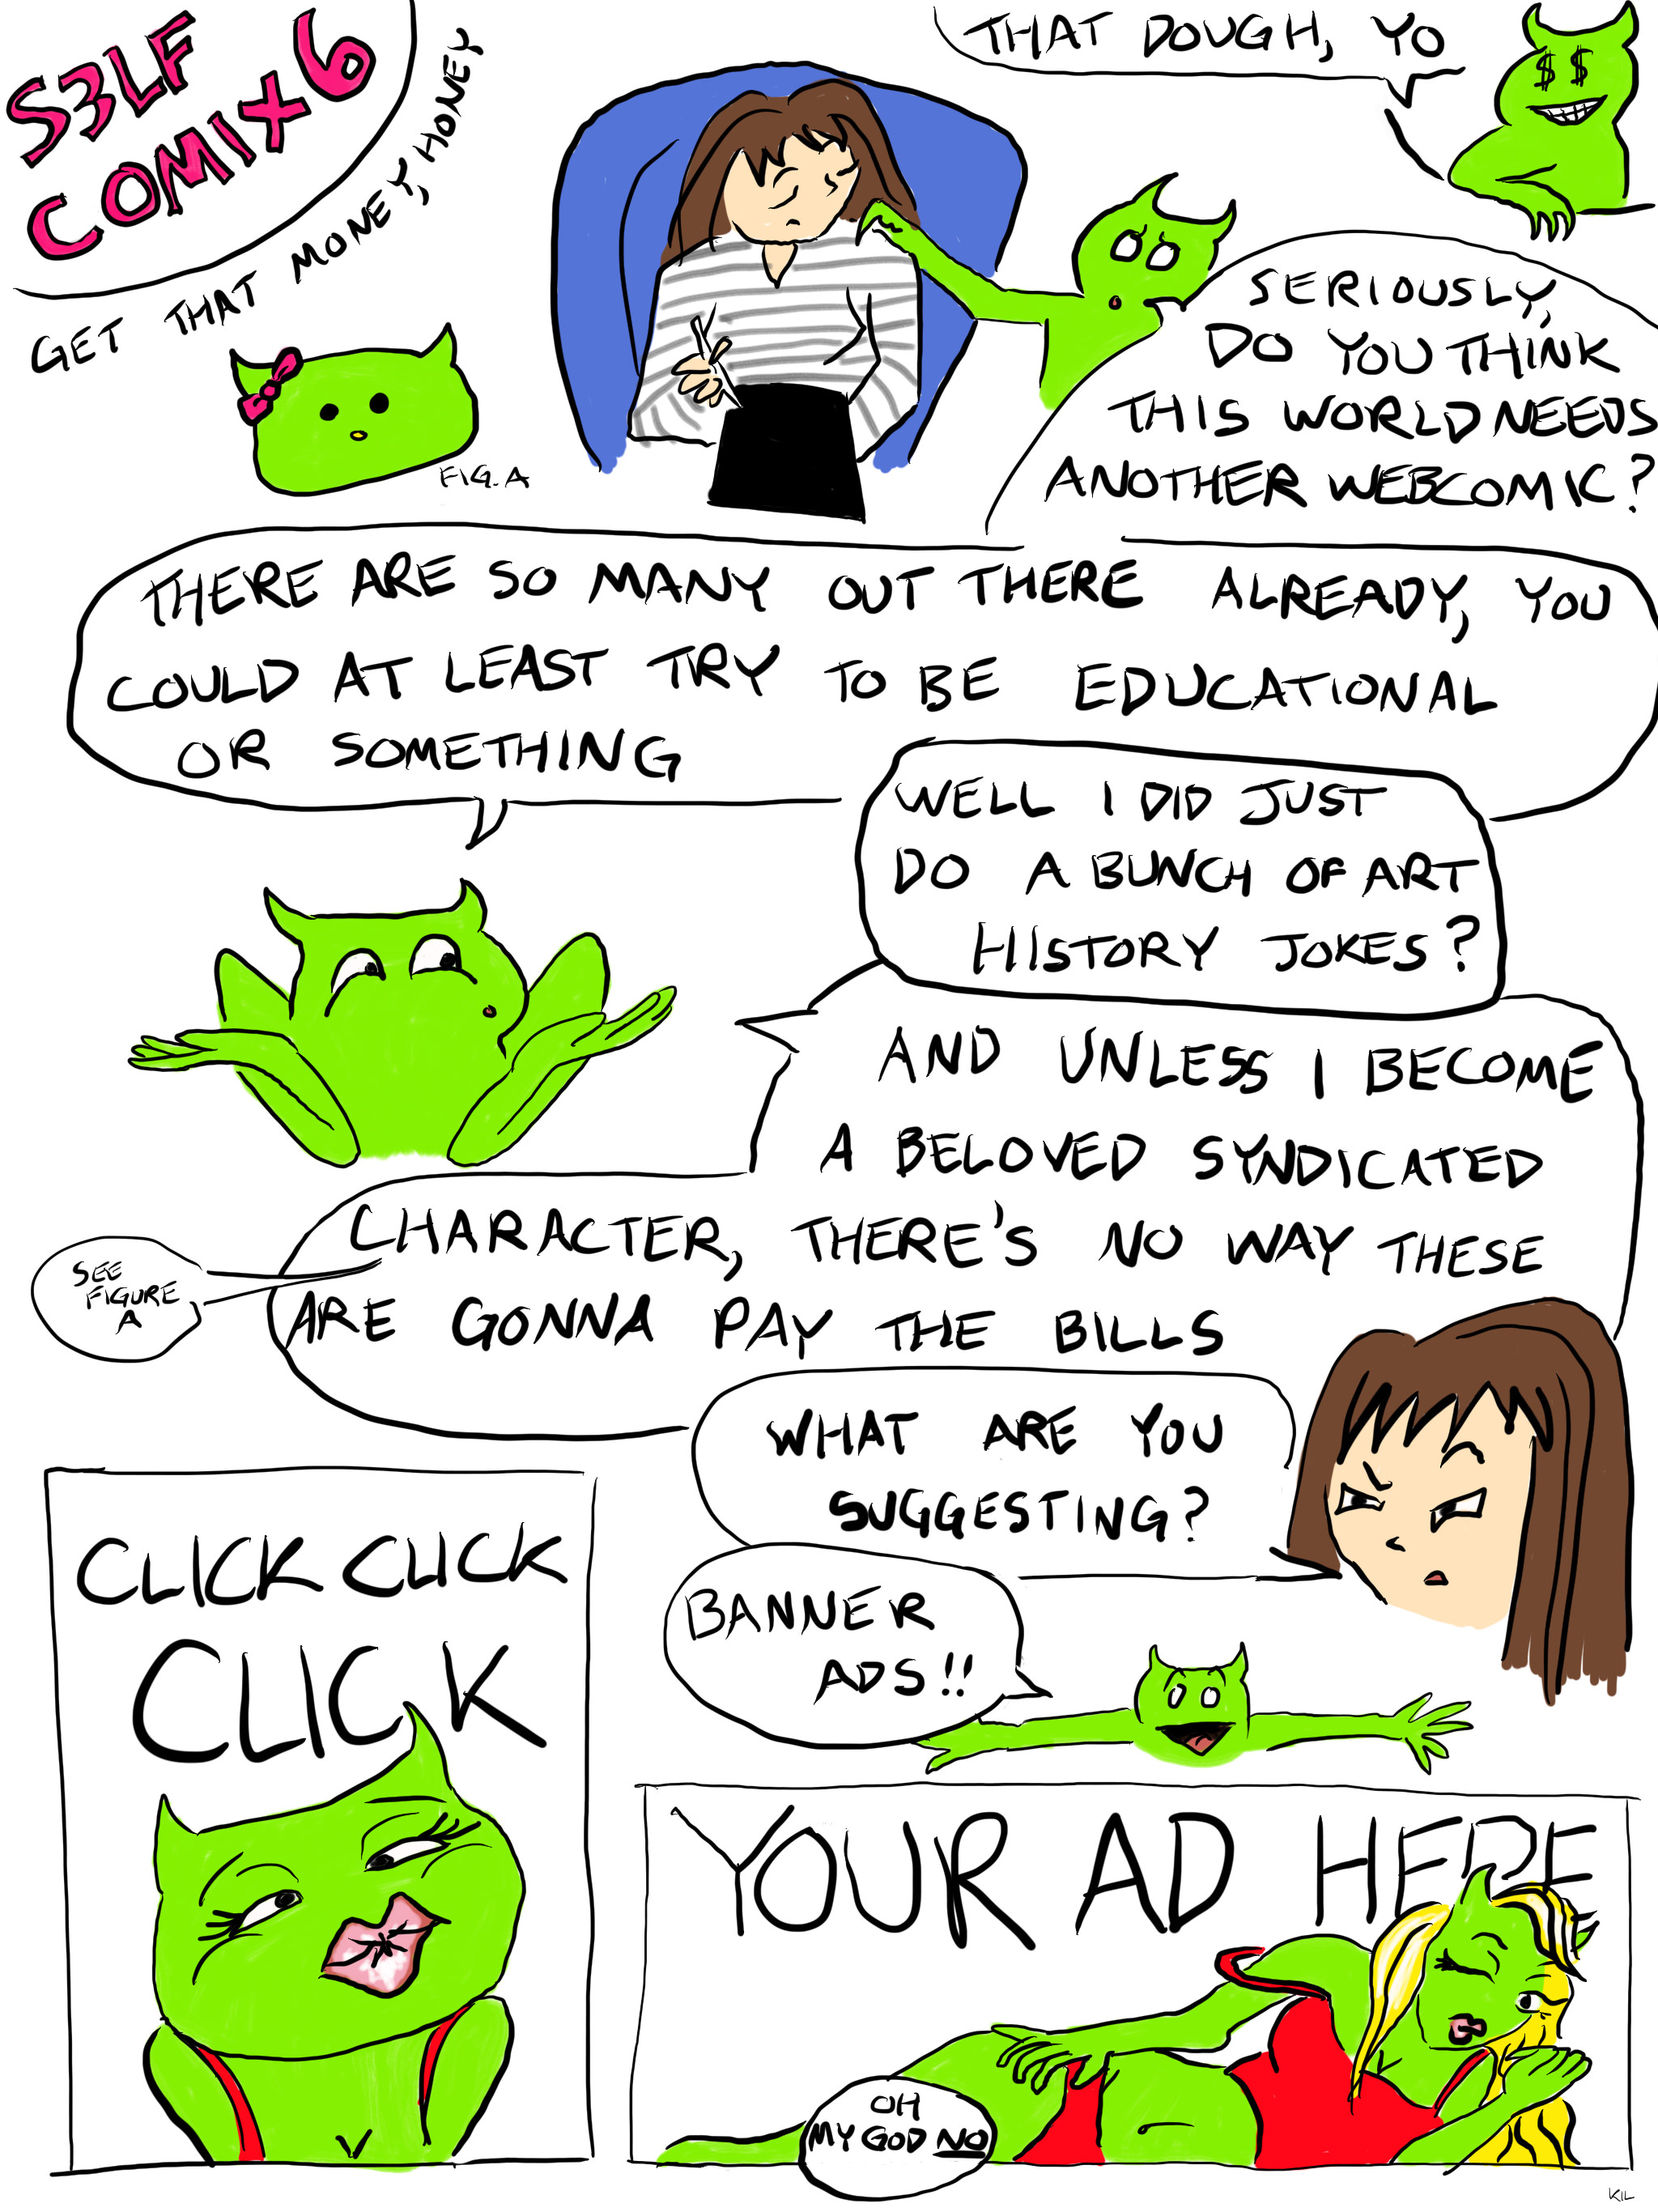 S3LF
COMIX 6
GET THAT MONEY, HONEY
FIG. A
THAT DOUGH, YO
SERIOUSLY,
DO YOU THINK
THIS WORLD NEEDS
ANOTHER WEBCOMIC?
THERE ARE SO MANY OUT THERE ALREADY, YOU
COULD AT LEAST TRY TO BE EDUCATIONAL
OR SOMETHING
WELL I DID JUST
DO A BUNCH OF ART
HISTORY JOKES?
AND UNLESS I BECOME
A BELOVED SYNDICATED
CHARACTER, THERE'S NO WAY THESE
ARE GONNA PAY THE BILLS
SEE
FIGURE
A
WHAT ARE YOU
SUGGESTING?
BANNER
ADS!!
CLICK CLICK
CLICK
YOUR AD HERE
OH
MY GOD NO
KIL